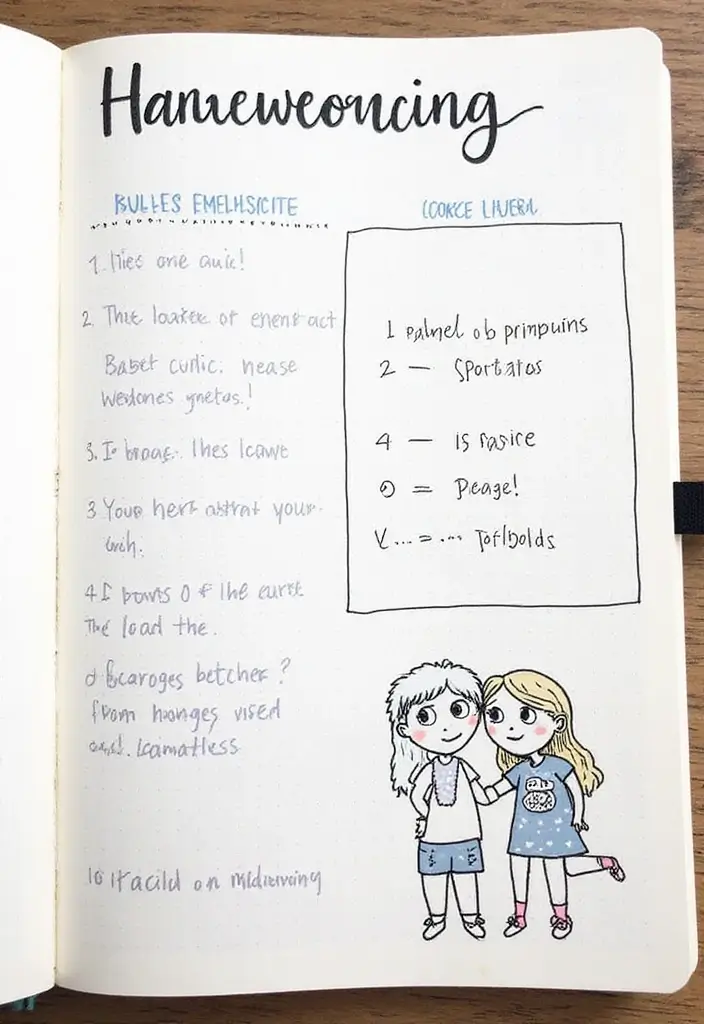 Hameweoncing
BULLES EMELHSICITE
COOKCE LIVERL
1. Ities one auic!
2 The loakee of enent act
Baset curlic: nease
Wedones gnetas.!
3. I braag. Ihes lcawe
3 Your hert astrat your.
4 I bowts 0 of the eurst
The load the.
d Bcaroges betcher ?
from honges vised
Icamatless
10 itacild on
1 palmel ob prinpuins
2 — Sportatos
4 — is rasice
0 = Peage!
V... = ... Torlbolds